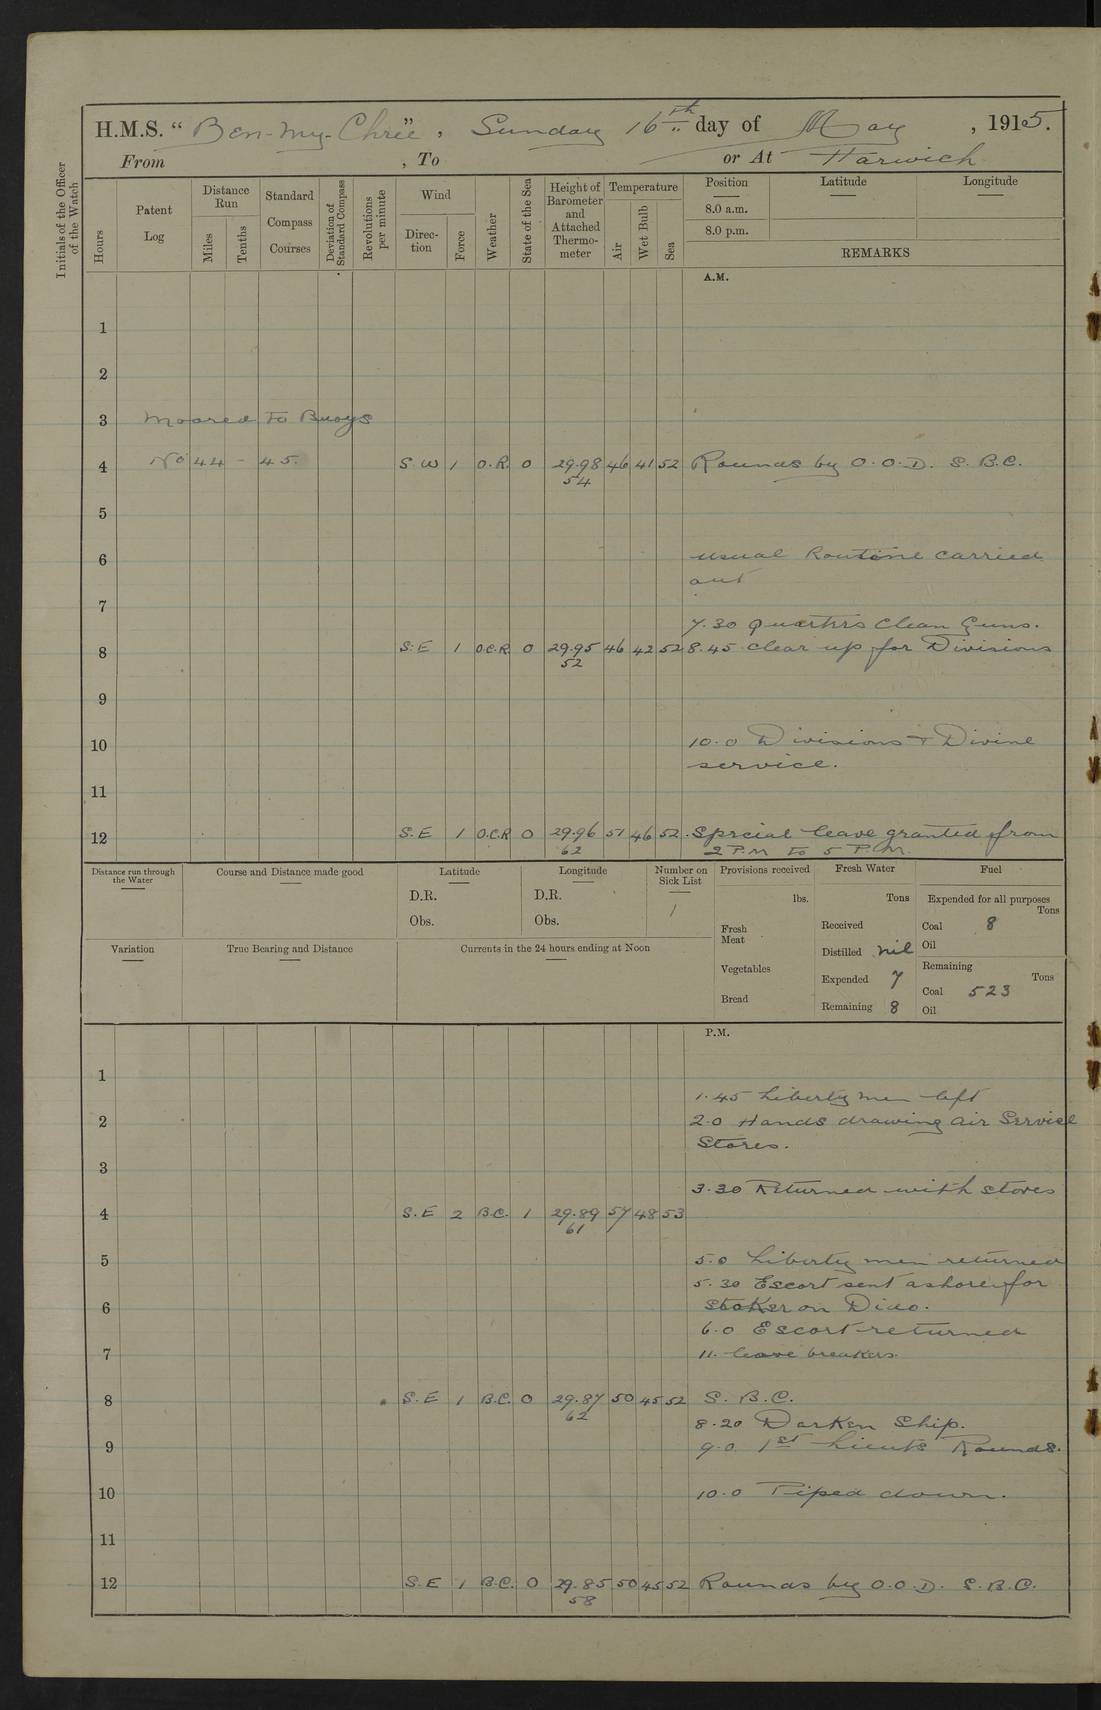 H.M.S. “ Ben-my-Chree ”, Sunday 16th day of May , 1915.
From , To or At Harwich
Initials of the Officer of the Watch
Hours
Patent Log
Distance Run
Miles
Tenths
Standard Compass Courses
Deviation of Standard Compass
Revolutions per minute
Wind
Direction
Force
Weather
State of the Sea
Height of Barometer and Attached Thermometer
Temperature
Air
Wet Bulb
Sea
Position Latitude Longitude
8.0 a.m.
8.0 p.m.
REMARKS
A.M.
1
2
3 Moored to Buoys
4 No 44 - 45. S W 1 O.R. 0 29.98 46 41 52 Rounds by O.O.D. S.B.C.
54
5
6 Usual Routine carried
out
7
7.30 Quarters Clean Guns.
8 S.E 1 O.C.R. 0 29.95 46 42 52 8.45 Clear up for Divisions
52
9
10 10.0 Divisions + Divine
service.
11
12 S.E 1 O.C.R 0 29.96 51 46 52 Special leave granted from
62 2 P.M to 5 P.M.
Distance run through the Water
Course and Distance made good
Latitude
D.R.
Obs.
Longitude
D.R.
Obs.
Number on Sick List
1
Provisions received
lbs.
Fresh Meat
Vegetables
Bread
Fresh Water
Tons
Received
Distilled nil
Expended 7
Remaining 8
Fuel
Expended for all purposes
Tons
Coal 8
Oil
Remaining
Tons
Coal 523
Oil
Variation
True Bearing and Distance
Currents in the 24 hours ending at Noon
P.M.
1
1.45 Liberty men left
2 2.0 Hands drawing Air Service
Stores.
3
3.30 Returned with stores
4 S.E 2 B.C. 1 29.89 57 48 53
61
5 5.0 Liberty men returned
5.30 Escort sent ashore for
6 Stoker on Dido.
6.0 Escort returned
7 11. leave breakers.
8 S.E 1 B.C. 0 29.87 50 45 52 S.B.C.
62 8.20 Darken Ship.
9 9.0 1st Lieuts Rounds.
10 10.0 Piped down.
11
12 S.E 1 B.C. 0 29.85 50 45 52 Rounds by O.O.D. S.B.C.
58